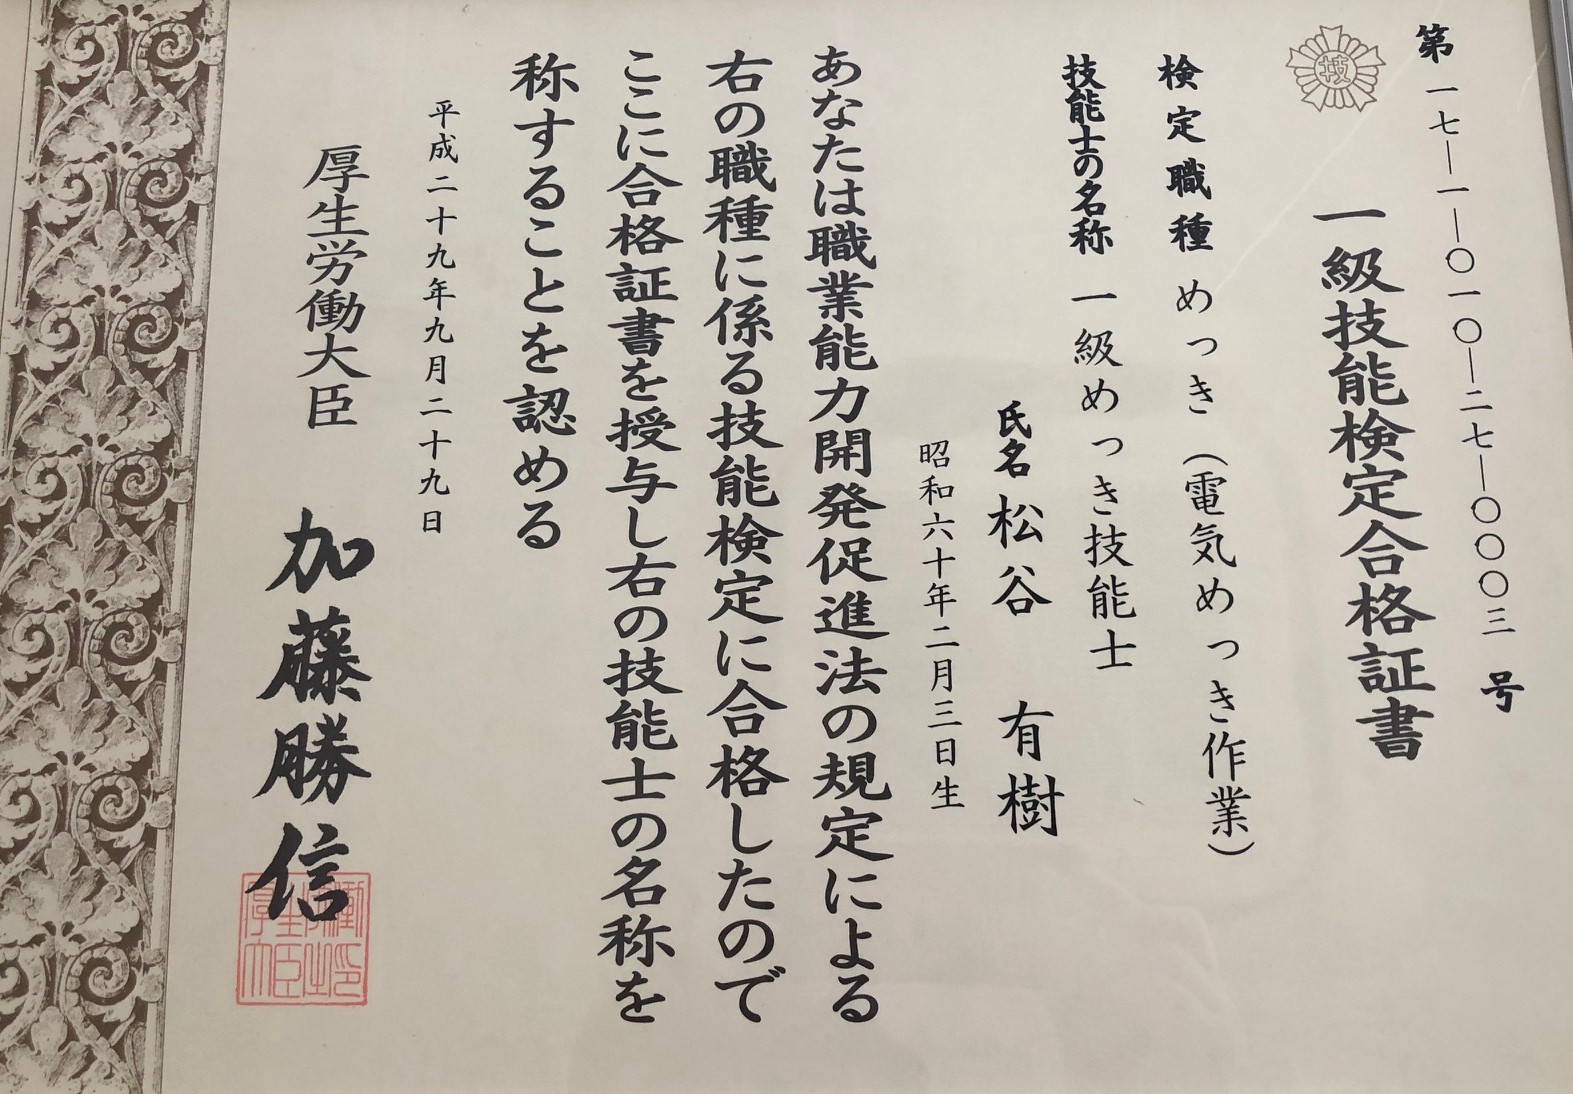 第一七―一―〇一〇―二七―〇〇〇三号
技
一級技能検定合格証書
検定職種 めっき（電気めっき作業）
技能士の名称 一級めっき技能士
氏名 松谷 有樹
昭和六十年二月三日生
あなたは職業能力開発促進法の規定による
右の職種に係る技能検定に合格したので
ここに合格証書を授与し右の技能士の名称を
称することを認める
平成二十九年九月二十九日
厚生労働大臣 加藤勝信